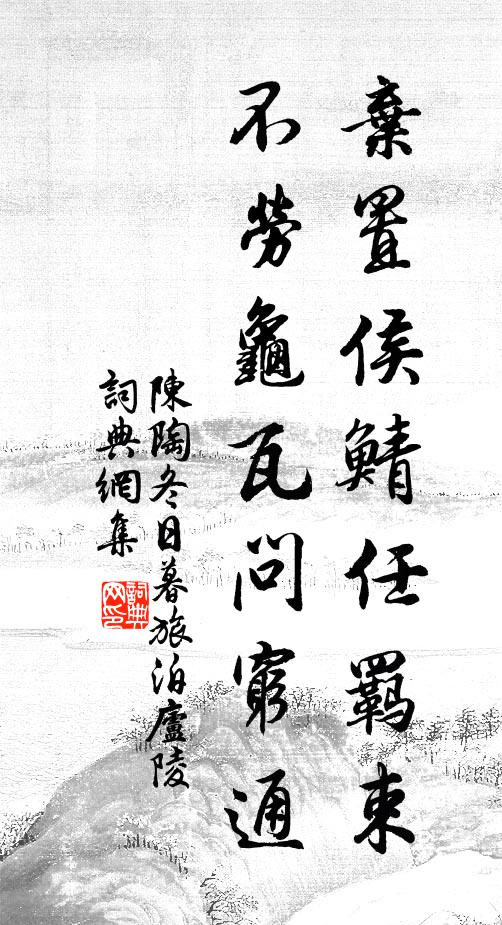 棄置侯鯖任羈束
不勞龜瓦問窮通
陳陶冬日暮旅泊廬陵
詞典網集
詞典網印